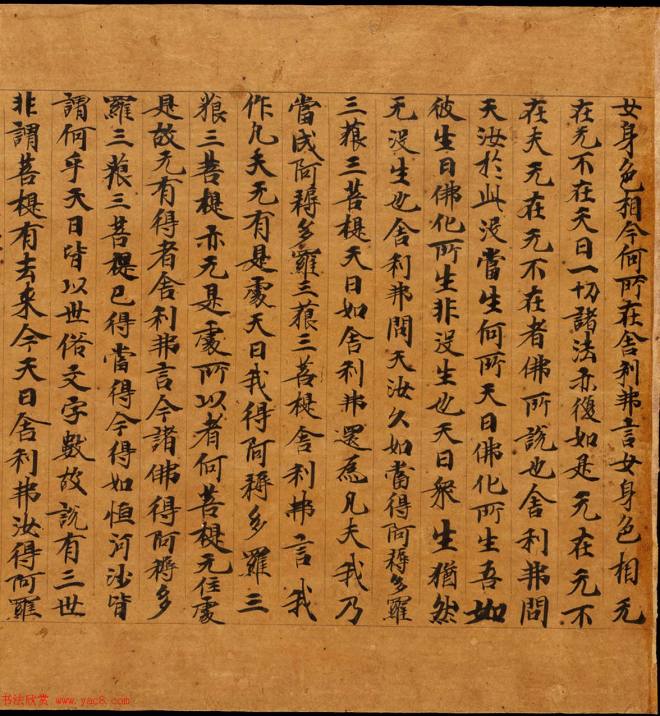 女身色相今何所在舍利弗言女身色相无
在无不在天曰一切諸法亦復如是无在无不
在夫无在无不在者佛所說也舍利弗問
天汝於此没當生何所天曰佛化所生吾如
彼生曰佛化所生非没生也天曰衆生猶然
无没生也舍利弗問天汝久如當得阿耨多羅
三藐三菩提天曰如舍利弗還爲凡夫我乃
當成阿耨多羅三藐三菩提舍利弗言我
作凡夫无有是處天曰我得阿耨多羅三
藐三菩提亦无是處所以者何菩提无住處
是故无有得者舍利弗言今諸佛得阿耨多
羅三藐三菩提已得當得今得如恒河沙皆
謂何乎天曰皆以世俗文字數故說有三世
非謂菩提有去來今天曰舍利弗汝得阿羅
书法欣赏 www.yac8.com